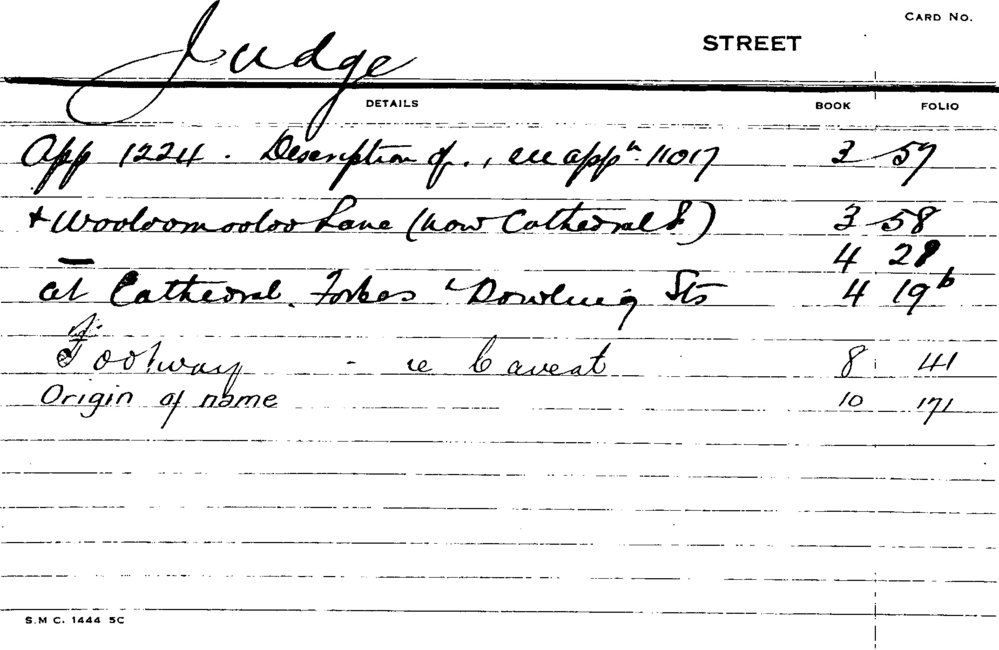 CARD NO.
Judge STREET
DETAILS BOOK FOLIO
App 1224. Description of., see appn. 11017 3 57
+ Wooloomooloo Lane (now Cathedral St) 3 58
4 28
at Cathedral. Forbes & Dowling Sts 4 19b
Footway - re Caveat 8 41
Origin of name 10 171
S.M C. 1444 5C